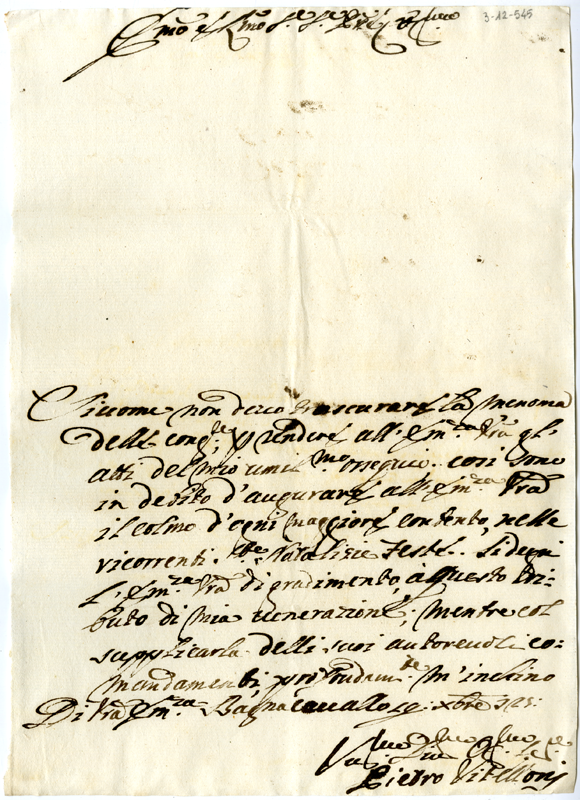 3-12-545
Emo e Rmo Sr. Sr.
Siccome non devo trascurare la menoma
delle cong.e p rendere all'Em.za Vra gl'
atti del mio umil.mo ossequio. così sono
in debito d'augurare all'Em.za Vra
il colmo d'ogni maggiore contento, nelle
ricorrenti Natalizie Feste. Si degni
L'Em.za Vra di gradimento, à questo tri-
buto di mia venerazione, mentre col
supplicarla delli suoi autorevoli co-
mandamenti, profondam.te m'inchino
Di Vra Em.za Bagnacavallo xbre
Pietro Vitelloni